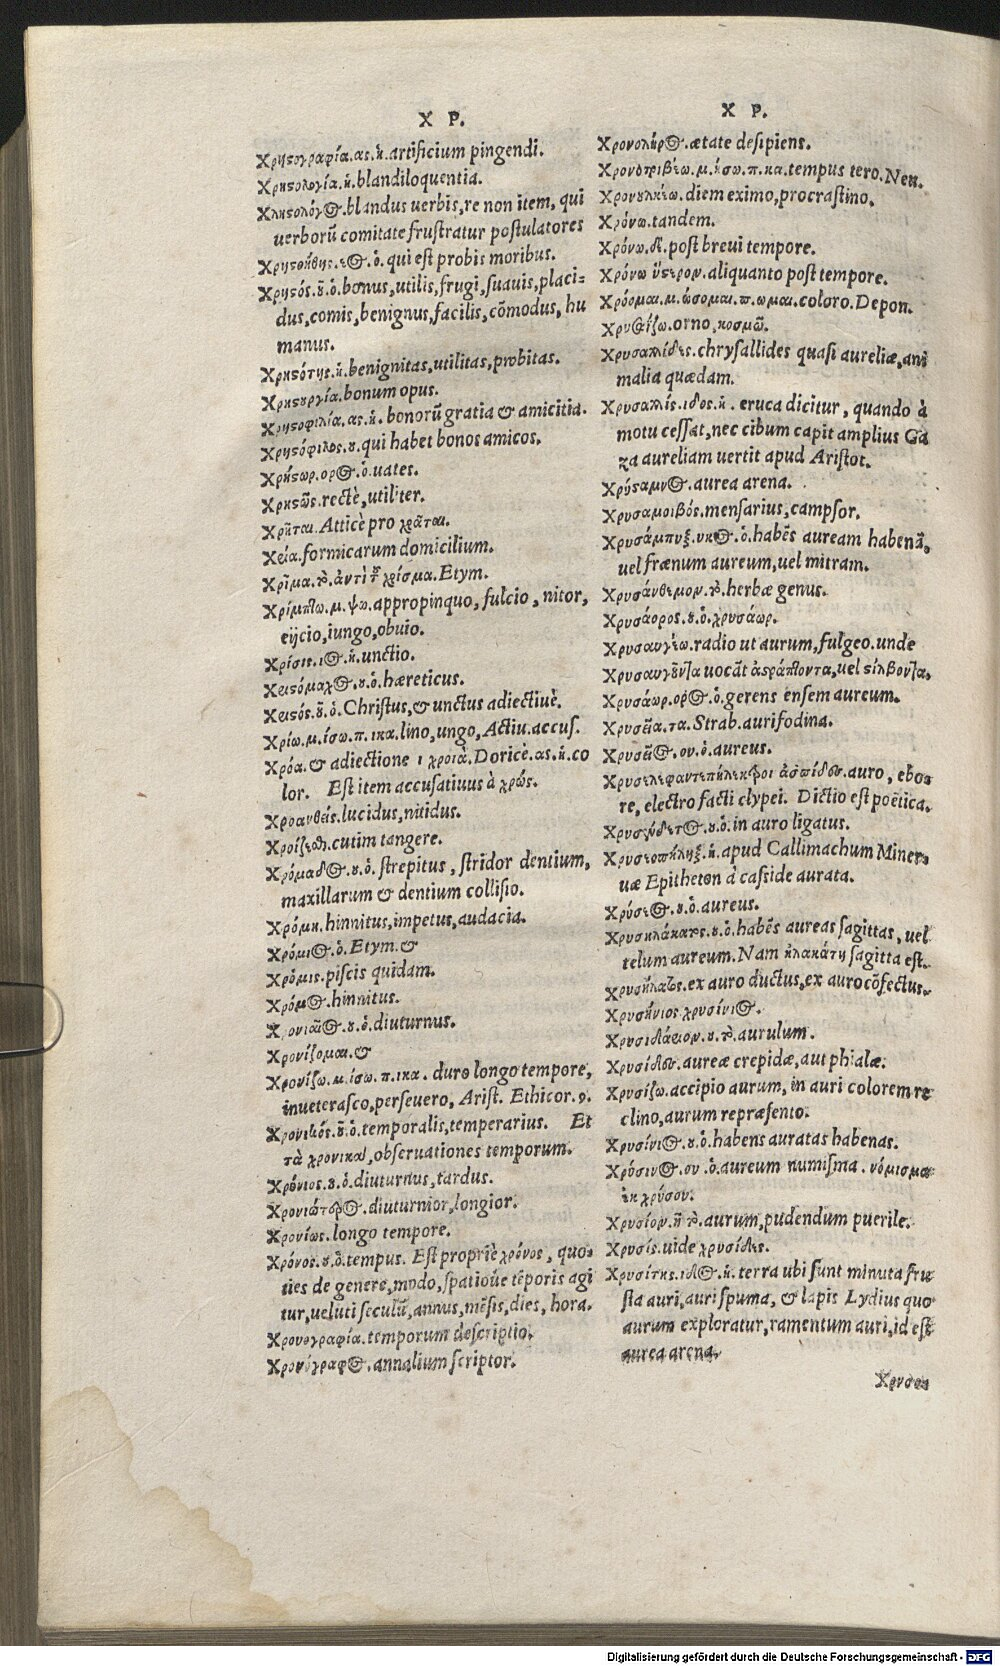 X P.
Χρηστογραφία.ας.ἡ.artificium pingendi.
Χρηστολογία.ἡ.blandiloquentia.
Χληστολόγος.blandus uerbis,re non item, qui
uerborũ comitate frustratur postulatores
Χρηστοήθης.εος.ὁ.qui est probis moribus.
Χρηστός.οῦ.ὁ.bonus,utilis,frugi,suauis,placi-
dus,comis,benignus,facilis,cõmodus,hu
manus.
Χρηστότης.ἡ.benignitas,utilitas,probitas.
Χρηστουργία.bonum opus.
Χρηστοφιλία.ας.ἡ. bonorũ gratia & amicitia.
Χρηστόφιλος.ου.qui habet bonos amicos.
Χρήστωρ.ορος.ὁ.uates.
Χρηστῶς.rectè,utiliter.
Χρῆται.Atticè pro χρᾶται.
Χρεία.formicarum domicilium.
Χρῖμα.τὸ.ἀντὶ τοῦ χρίσμα.Etym.
Χρίμπτω.μ.ψω.appropinquo,fulcio, nitor,
eijcio,iungo,obuio.
Χρίσις.ιος.ἡ.unctio.
Χριστόμαχος.ου.ὁ.hæreticus.
Χριστός.οῦ.ὁ.Christus,& unctus adiectiuè.
Χρίω.μ.ίσω.π.ικα.lino,ungo,Actiu.accus.
Χρόα.& adiectione ι χροιὰ.Doricè.ας.ἡ.co
lor. Est item accusatiuus à χρώς.
Χροανθείς.lucidus,nitidus.
Χροΐζεσθαι.cutim tangere.
Χρόμαδος.ου.ὁ. strepitus, stridor dentium,
maxillarum & dentium collisio.
Χρόμη.hinnitus,impetus,audacia.
Χρόμιος.ὁ.Etym.&
Χρόμις.piscis quidam.
Χρόμος.hinnitus.
Χρονιαῖος.ου.ὁ.diuturnus.
Χρονίζομαι.&
Χρονίζω.μ.ίσω.π.ικα. duro longo tempore,
inueterasco,perseuero, Arist. Ethicor.9.
Χρονικός.οῦ.ὁ.temporalis,temperarius. Et
τὰ χρονικαὶ,obseruationes temporum.
Χρόνιος.ου.ὁ.diuturnus,tardus.
Χρονιώτερος.diuturnior,longior.
Χρονίως.longo tempore.
Χρόνος.ου.ὁ.tempus. Est propriè χρόνος, quo-
ties de genere,modo,spatioúe tẽporis agi
tur,ueluti seculũ,annus,mẽsis,dies, hora.
Χρονογραφία.temporum descriptio.
Χρονογράφος.annalium scriptor.
X P.
Χρονόληρος.ætate desipiens.
Χρονοτριβέω.μ.ήσω.π.κα.tempus tero.Neu.
Χρονουλκέω.diem eximo,procrastino.
Χρόνω.tandem.
Χρόνω.δὲ.post breui tempore.
Χρόνω ὕστερον.aliquanto post tempore.
Χρόομαι.μ.ώσομαι.π.ωμαι.coloro.Depon.
Χρυσίζω.orno,κοσμῶ.
Χρυσαλλίδες.chrysallides quasi aureliæ,ani
malia quædam.
Χρυσαλλίς.ιδος.ἡ. eruca dicitur, quando à
motu cessat,nec cibum capit amplius Ga
za aureliam uertit apud Aristot.
Χρύσαμνος.aurea arena.
Χρυσαμοιβός.mensarius,campsor.
Χρυσάμπυξ.υκος.ὁ.habẽs auream habenã,
uel frænum aureum,uel mitram.
Χρυσάνθεμον.τὸ.herbæ genus.
Χρυσάορος.ου.ὁ.χρυσάωρ.
Χρυσαυγέω.radio ut aurum,fulgeo.unde
Χρυσαυγοῦντα uocãt ἀστράπτοντα,uel στίλβοντα.
Χρυσάωρ.ορος.ὁ.gerens ensem aureum.
Χρυσεῖα.τα.Strab.aurifodina.
Χρυσεῖος.ου.ὁ.aureus.
Χρυσελεφαντεπήλεκτροι ἀσπίδες.auro, ebo-
re, electro facti clypei. Dictio est poëtica.
Χρυσένδετος.ου.ὁ.in auro ligatus.
Χρυσεοπήληξ.ἡ.apud Callimachum Miner-
uæ Epitheton à casside aurata.
Χρύσεος.ου.ὁ.aureus.
Χρυσηλάκατος.ου.ὁ.habẽs aureas sagittas, uel
telum aureum. Nam ἠλακάτη sagitta est.
Χρυσήλατος.ex auro ductus,ex auro cõfectus.
Χρυσήνιος χρυσίνιος.
Χρυσιδάριον.ου.τὸ.aurulum.
Χρυσίδες.aureæ crepidæ, aut phialæ.
Χρυσίζω.accipio aurum, in auri colorem re
clino,aurum repræsento.
Χρυσίνιος.ου.ὁ.habens auratas habenas.
Χρύσινος.ου.ὁ.aureum numisma.νόμισμα
ἐκ χρύσου.
Χρυσίον.ἢ τὸ.aurum,pudendum puerile.
Χρυσίς.uide χρυσίδες.
Χρυσίτης.ιδος.ἡ.terra ubi sunt minuta fru
sta auri,auri spuma, & lapis Lydius quo
aurum exploratur,ramentum auri,id est
aurea arena.
Χρυσοπ
Digitalisierung gefördert durch die Deutsche Forschungsgemeinschaft - DFG